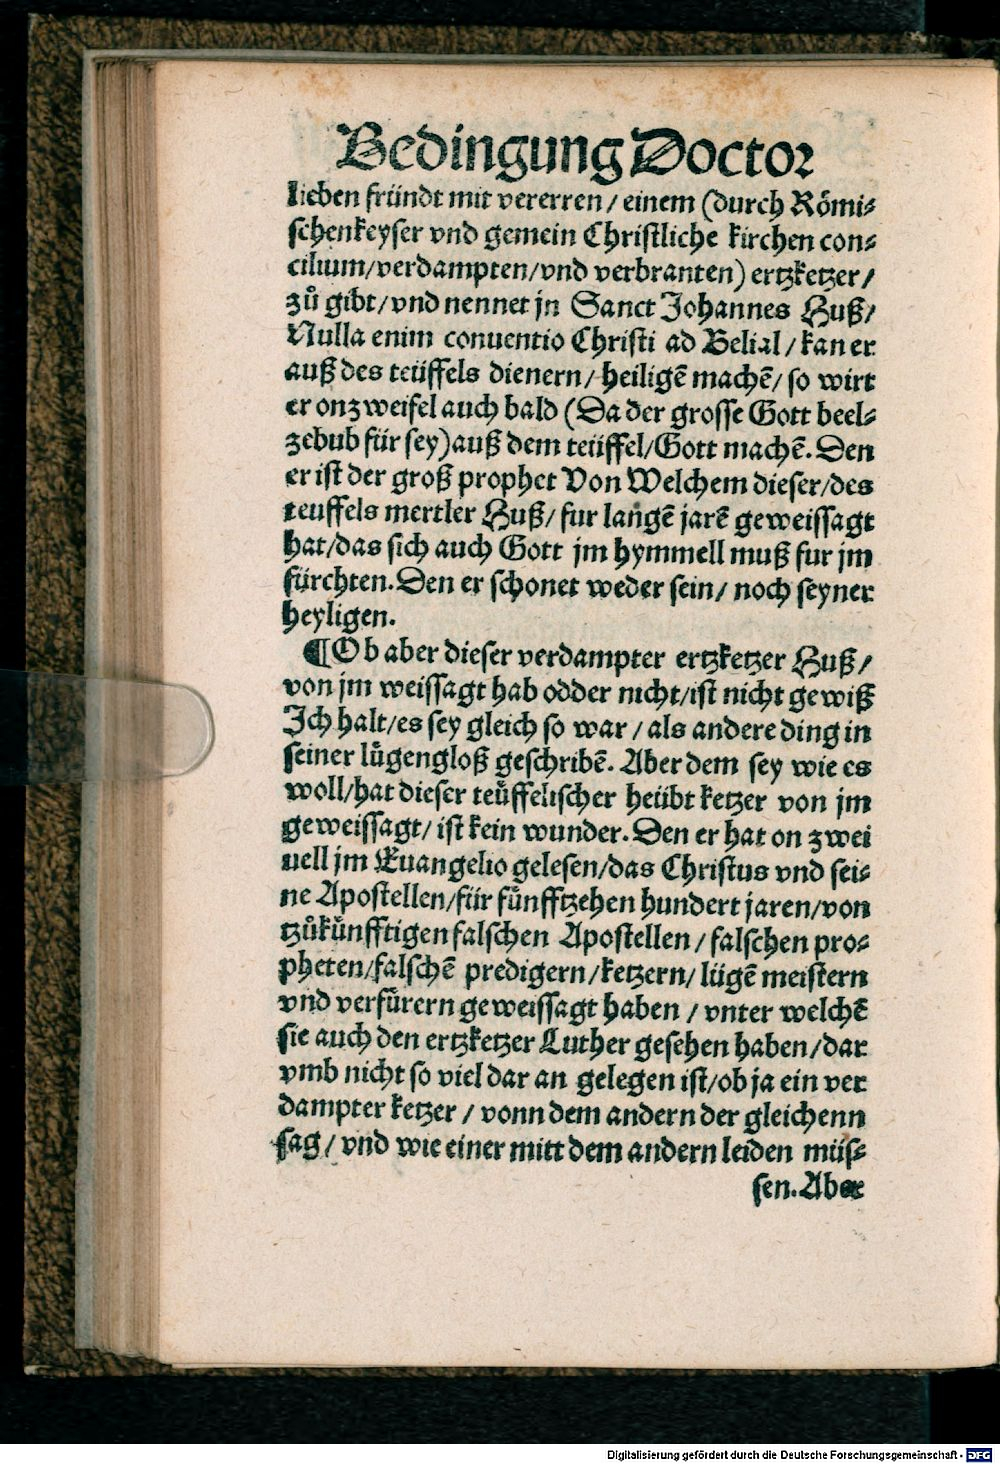 Bedingung Doctor
lieben fründt mit vererren / einem (durch Römi⸗
schenkeyser vnd gemein Christliche kirchen con⸗
cilium/verdampten/vnd verbranten) ertzketzer /
zů gibt/vnd nennet jn Sanct Johannes Huß/
Nulla enim conuentio Christi ad Belial / kan er
auß des teüffels dienern/heiligē machē/ so wirt
er onzweifel auch bald (Da der grosse Gott beel⸗
zebub für sey)auß dem teüffel/Gott machē. Den
er ist der groß prophet Von Welchem dieser/des
teuffels mertler Huß/ fur langē jarē geweissagt
hat/das sich auch Gott jm hymmell muß fur jm
fürchten. Den er schonet weder sein/ noch seyner
heyligen.
¶Ob aber dieser verdampter ertzketzer Huß/
von jm weissagt hab odder nicht/ist nicht gewiß
Ich halt/es sey gleich so war / als andere ding in
seiner lůgengloß geschribē. Aber dem sey wie es
woll/hat dieser teůffelischer heübt ketzer von jm
geweissagt/ ist kein wunder. Den er hat on zwei
uell jm Euangelio gelesen/das Christus vnd sei⸗
ne Apostellen/für fůnfftzehen hundert jaren/von
tzůkůnfftigen falschen Apostellen / falschen pro⸗
pheten/falschē predigern/ketzern/ lügē meistern
vnd verfürern geweissagt haben / vnter welchē
sie auch den ertzketzer Luther gesehen haben/dar
vmb nicht so viel dar an gelegen ist/ob ja ein ver
dampter ketzer / vonn dem andern der gleichenn
sag/ vnd wie einer mitt dem andern leiden müs⸗
sen. Aber
Digitalisierung gefördert durch die Deutsche Forschungsgemeinschaft - DFG